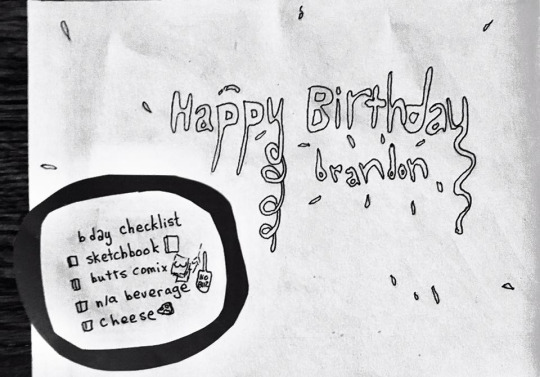 Happy Birthday
brandon
bday checklist
sketchbook
butts comix
n/a beverage
NO
cheese